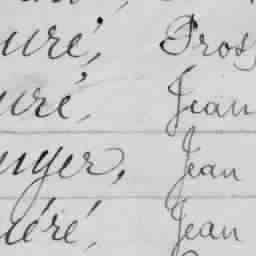 uré, Pros
uré, Jean
uyer, Jean
éré, Jean